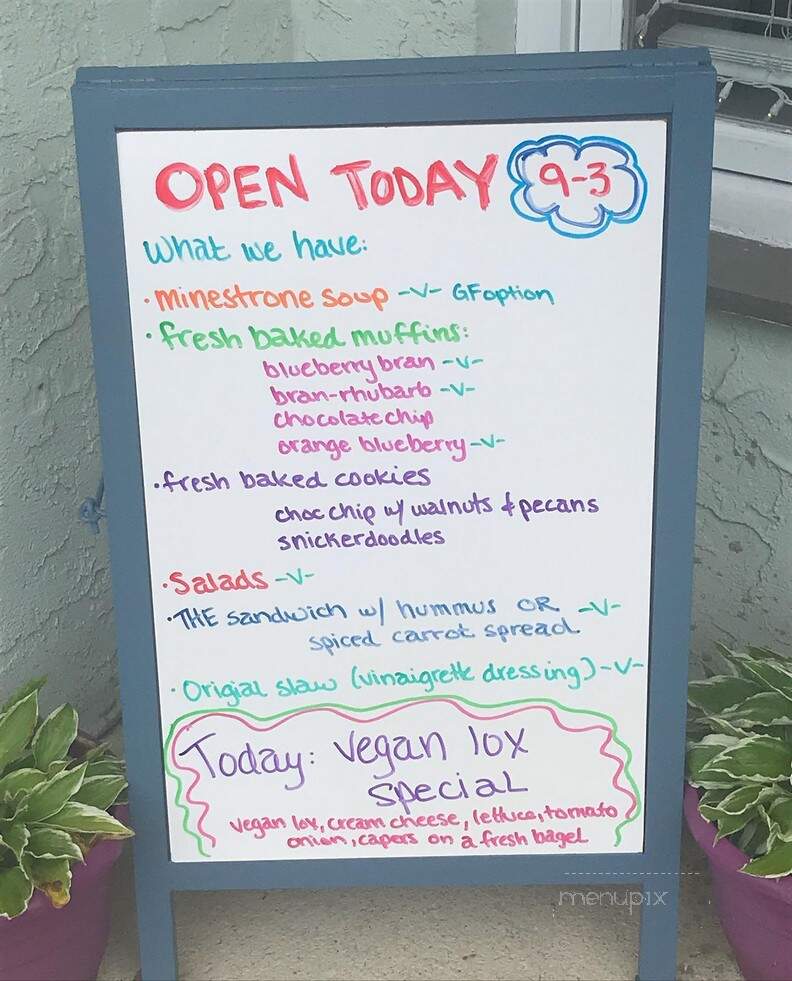 OPEN TODAY 9-3
What we have:
· minestrone soup -V- GF option
· fresh baked muffins:
blueberry bran -V-
bran-rhubarb -V-
chocolate chip
orange blueberry -V-
· fresh baked cookies
choc chip w/ walnuts & pecans
snickerdoodles
· Salads -V-
· THE sandwich w/ hummus OR -V-
spiced carrot spread
· Origial slaw (vinaigrette dressing) -V-
Today: vegan lox
special
vegan lox, cream cheese, lettuce, tomato
onion, capers on a fresh bagel
menupix